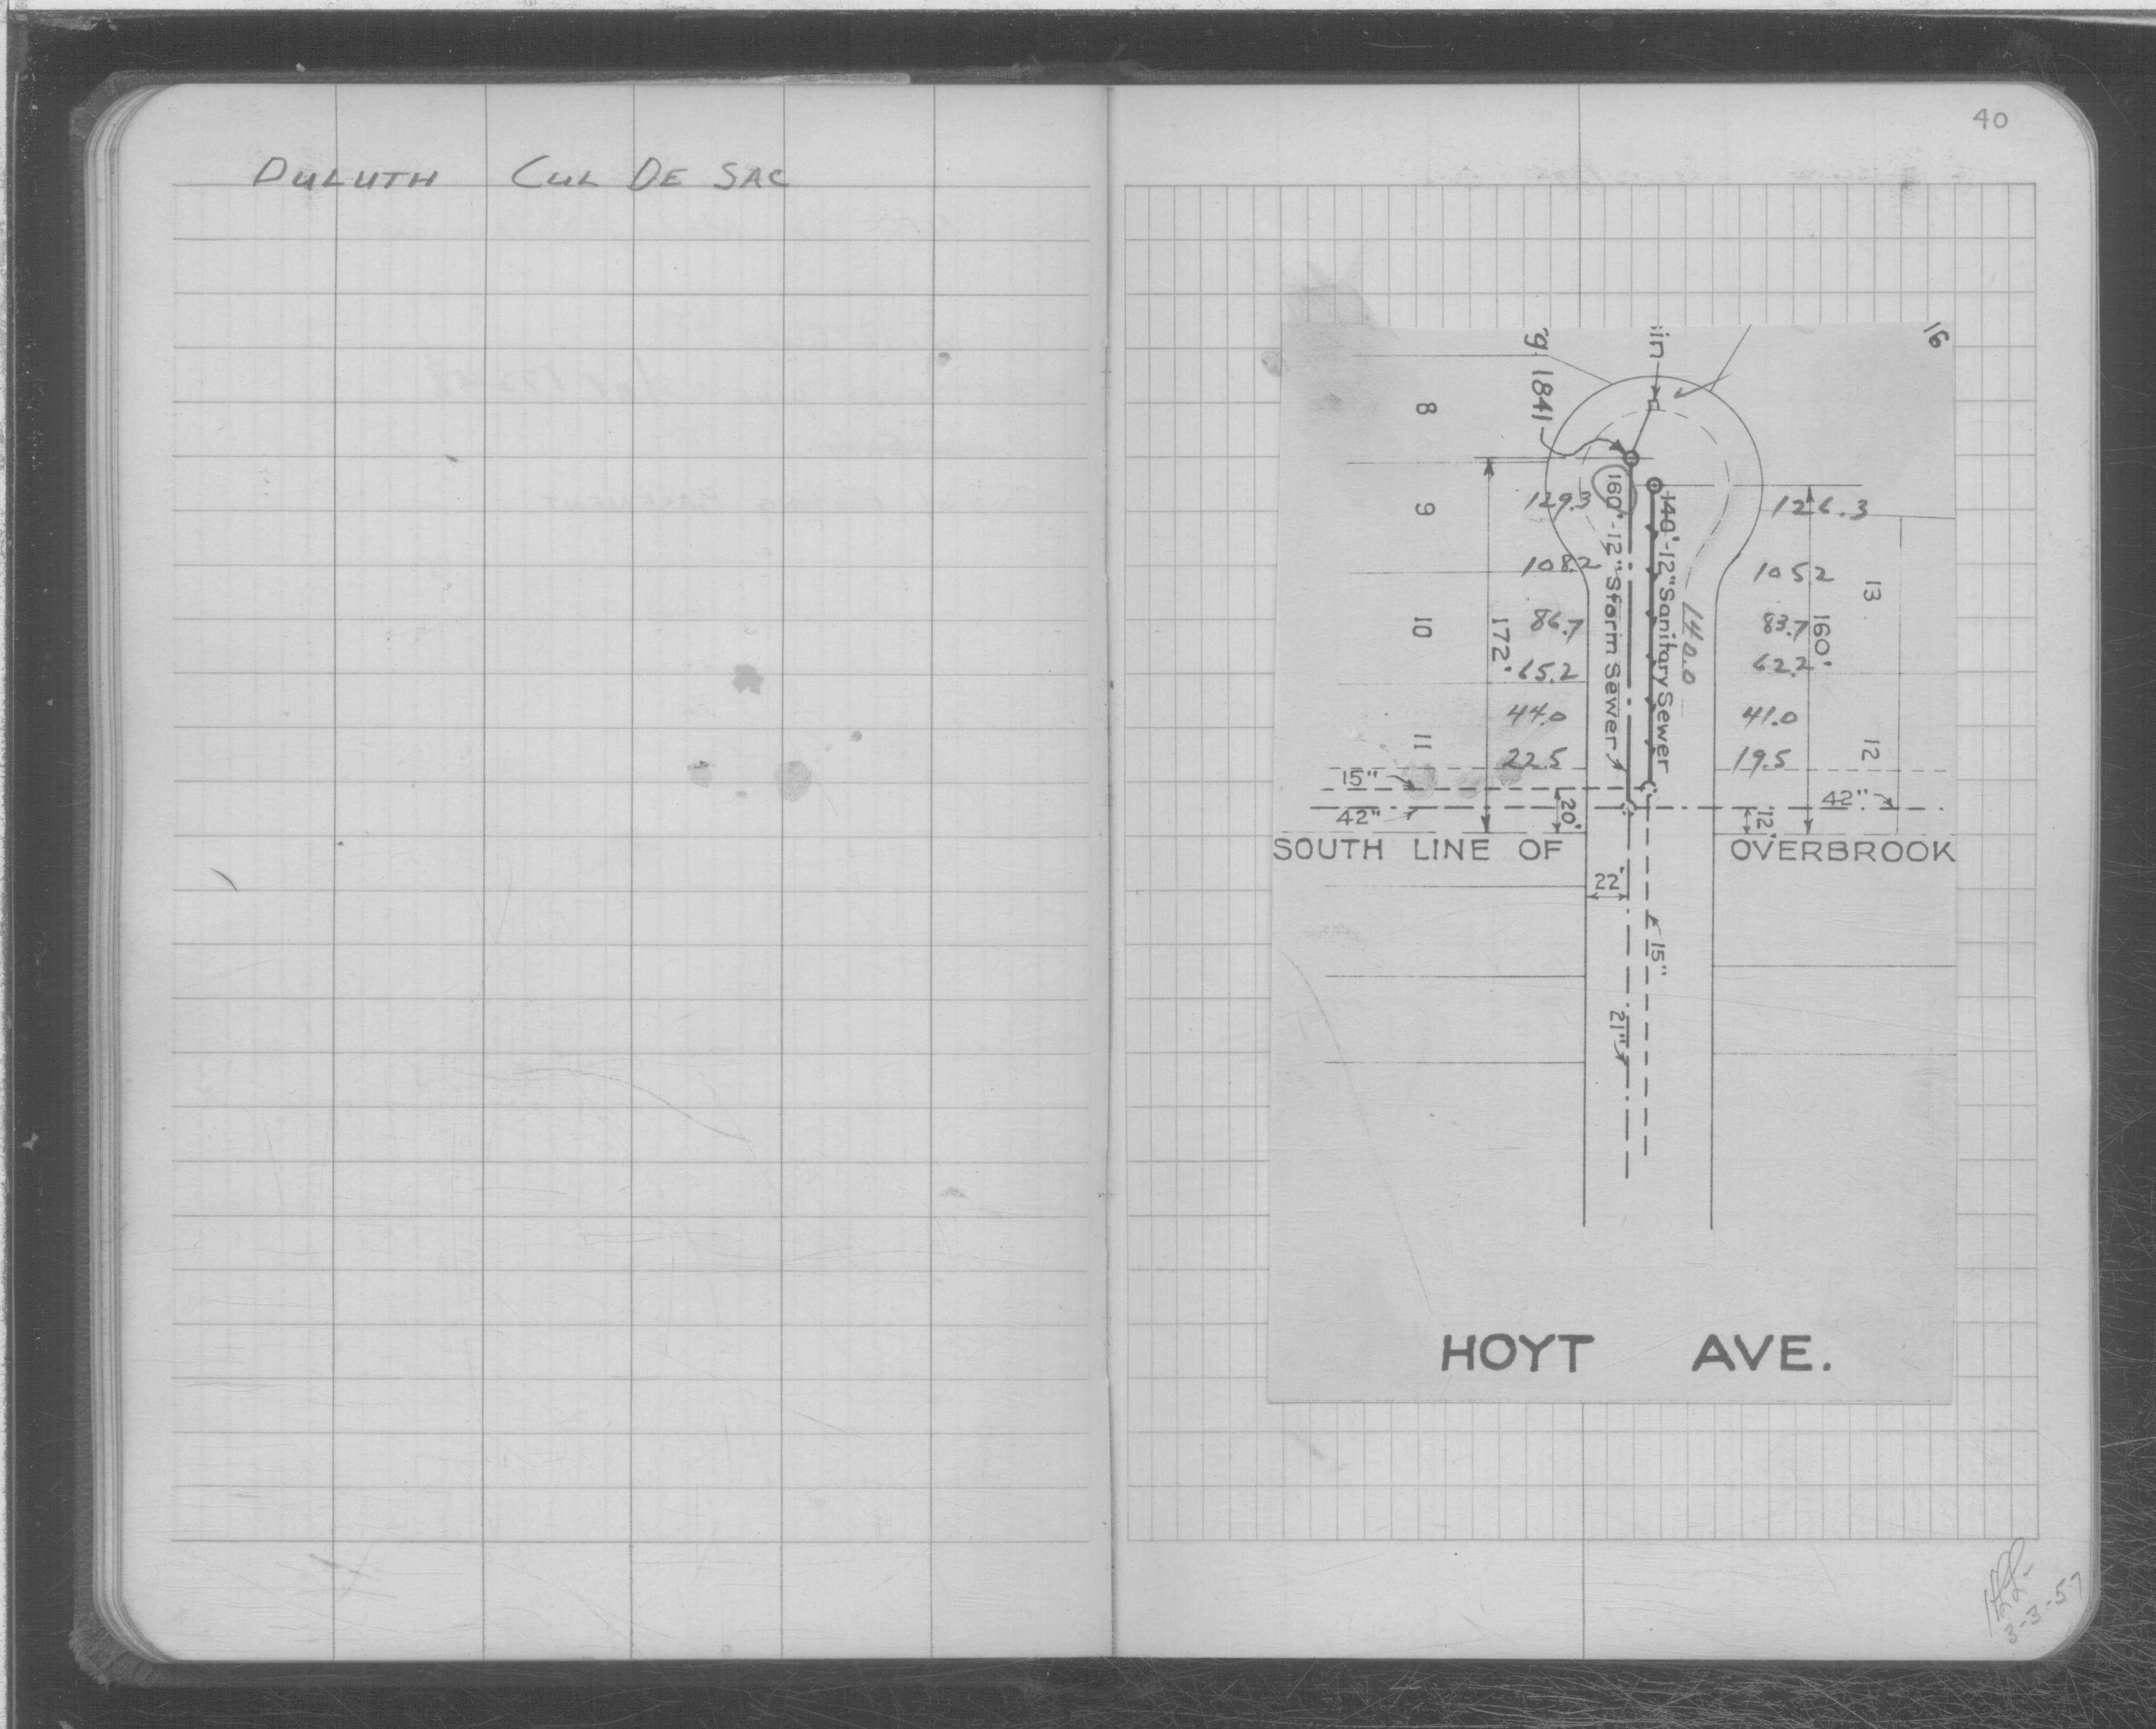 DULUTH CUL DE SAC
40
16
in
g. 1841
8
9
10
11
129.3
108.2
86.7
65.2
44.0
22.5
172'
160'-12" Storm Sewer
140'-12" Sanitary Sewer
140.0
126.3
105.2
83.7
62.2
41.0
19.5
160'
13
12
15"
42"
20'
42"
12'
SOUTH LINE OF OVERBROOK
22'
15"
21"
HOYT AVE.
3-3-57